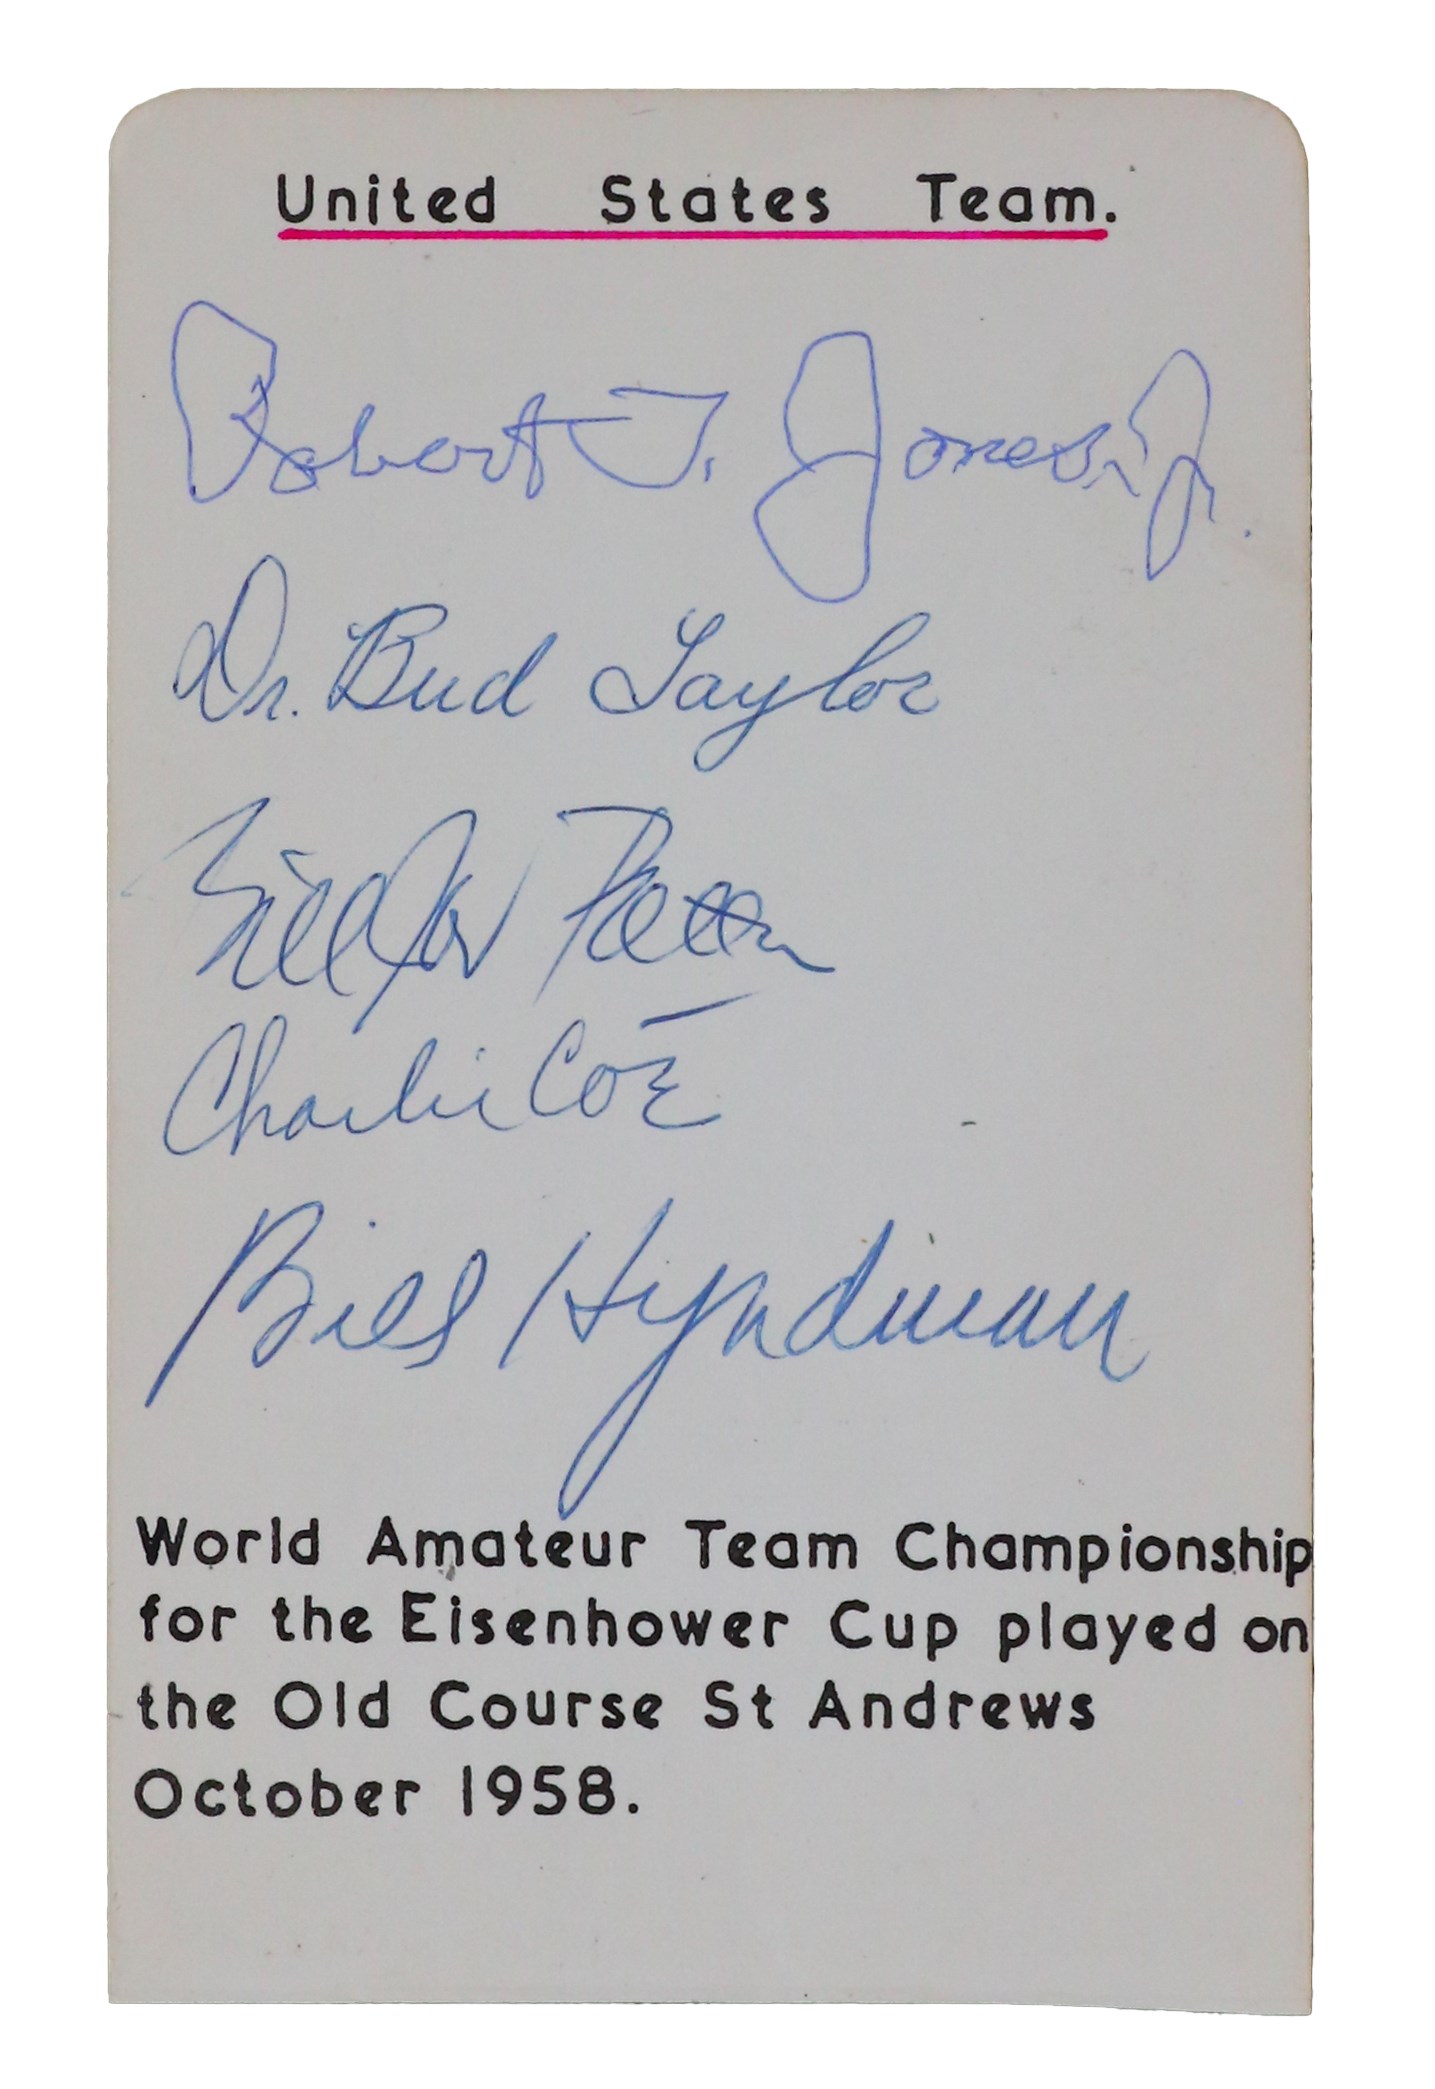 United States Team.
Robert T. Jones Jr.
Dr. Bud Taylor
Bill Joe Patton
Charlie Coe
Bill Hyndman
World Amateur Team Championship
for the Eisenhower Cup played on
the Old Course St Andrews
October 1958.